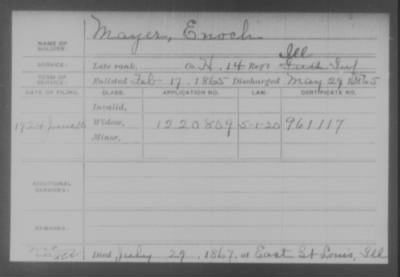 NAME OF SOLDIER: Mayer, Enoch
Ill
SERVICE: Late rank, Co. H, 14 Reg't Inf
TERM OF SERVICE: Enlisted Feb 17, 1865 Discharged May 29 1865
DATE OF FILING. CLASS. APPLICATION NO. LAW. CERTIFICATE NO.
Invalid,
1924 Widow, 1220809 5-1-20 961117
Minor,
ADDITIONAL SERVICES:
REMARKS:
Died July 29, 1867, at East St Louis, Ill